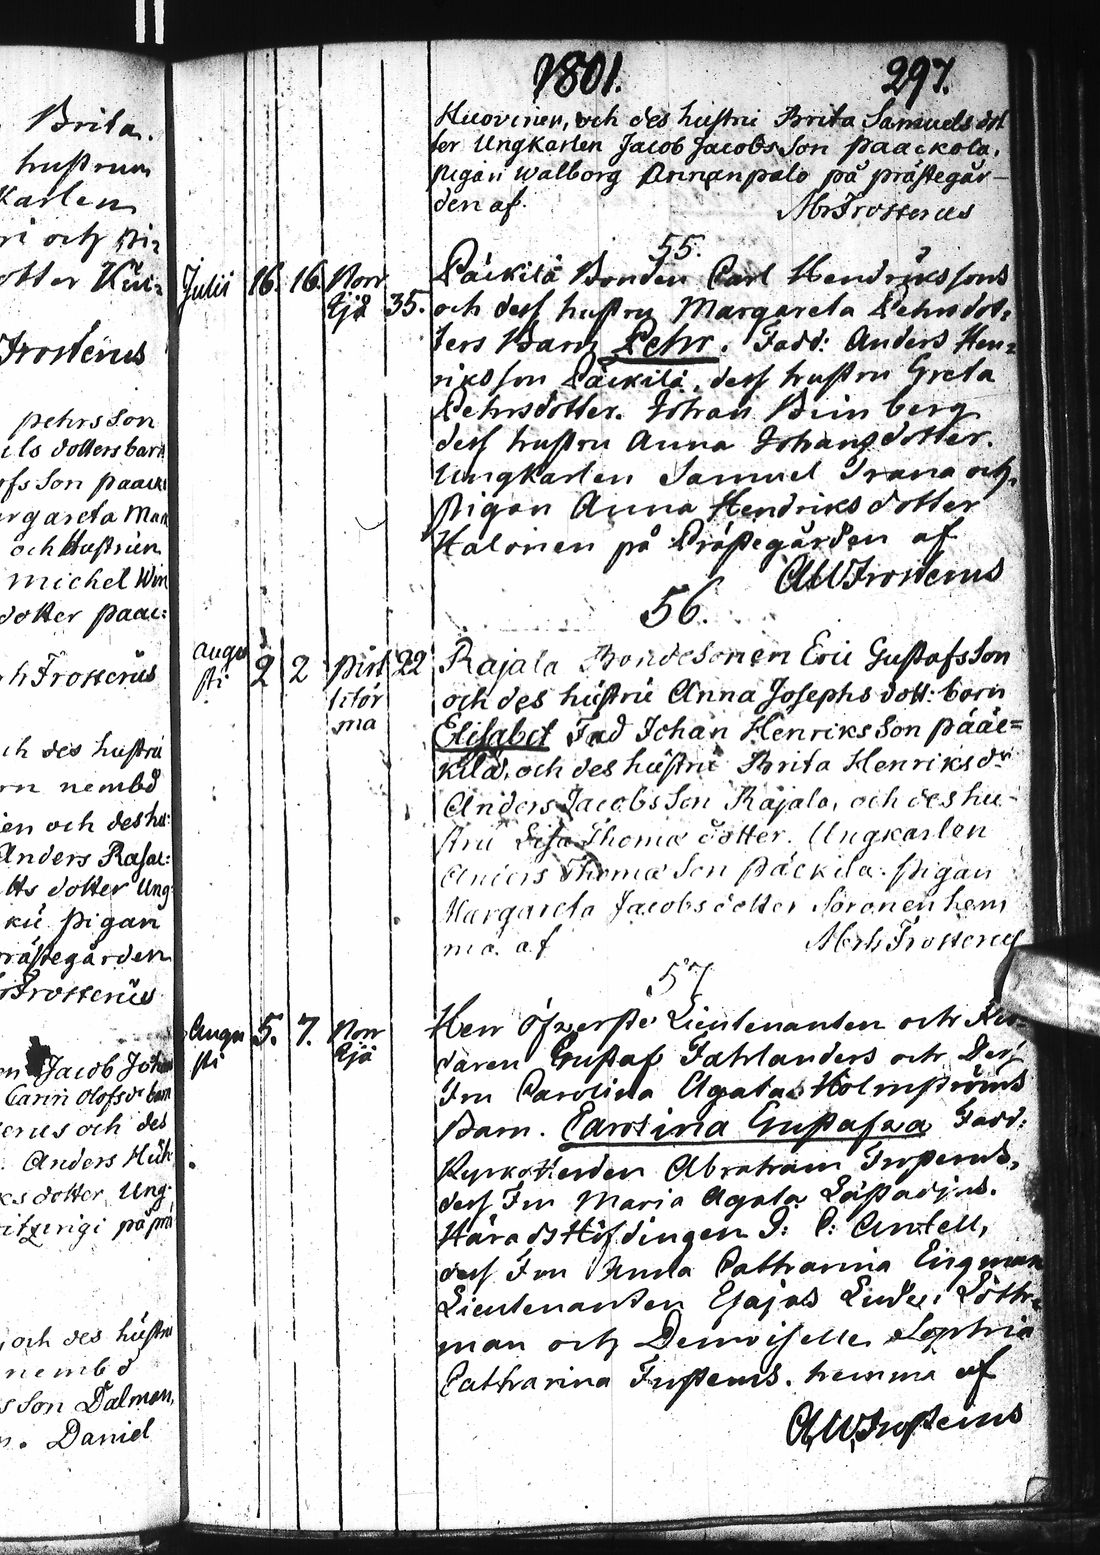 Brita.
hustrun
Karlen
ri och pi=
otter Kui=
Frosterus
pehrsson
ils dotters barn
fsson paack
rgareta Mar
och Hustrun
michel Win
dotter paac:
h Frosterus
ch des hustru
rn nembd
ien och des hu:
Anders Rajal:
ts dotter Ung
ku pigan
rästegården
Frosterus
Jacob Joha
Carin Olofsdr barn
erus och des
Anders Huk
ks dotter Ung
itzirigi på prä
och des hustru
nembd
s son Dalman,
Daniel
1801. 297.
Huovinen, och des hustru Brita Samuelsdot
ter Ungkarlen Jacob Jacobs Son paackola,
pigan Walborg Annanpalo på prästegår-
den af AbrFrosterus
55.
Julii 16. 16. Norr Päckilä Bonden Carl Hendrikssons
tjä 35. och dess hustru Margareta Pehrsdot=
ters Barn Pehr. Fadd: Anders Hen=
riksson Päckilä, dess hustru Greta
Pehrsdotter. Johan Beinberg
dess hustru Anna Johansdotter.
Ungkarlen Samuel Trana och
pigan Anna Hendriksdotter
Halonen på Prästegården af
AWFrosterus
56.
Augu 2 2 pist 22 Rajala Bondesonen Eric Gustafsson
sti hiör och des hustru Anna Josephs dott: barn
ma Elisabet Fad Johan Henriksson pääc=
kilä, och des hustru Brita Henriksdr
Anders Jacobsson Rajala, och des hu-
stru Lisa Thomæ dotter. Ungkarlen
Anders Thomæ Son päckilä. pigan
Margareta Jacobsdotter Soronen hem
ma. af Abrh Frosterus
57
Augu 5. 7. Norr Herr Öfverste Lieutenanten och Rid-
sti tjä daren Gustaf Fahlanders och Dess
Fru Carolina Agata Holmströms
Barn. Carolina Gustafva Fadd:
Kyrko Herden Abraham Frosterus,
dess Fru Maria Agata Læstadius.
Härads Höfdingen P: C: Antell,
dess Fru Anna Catharina Eingman
Lieutenanten Esajas Löthr=
man och Demoiselle Sophia
Catharina Frosterus. hemma af
AWFrosterus